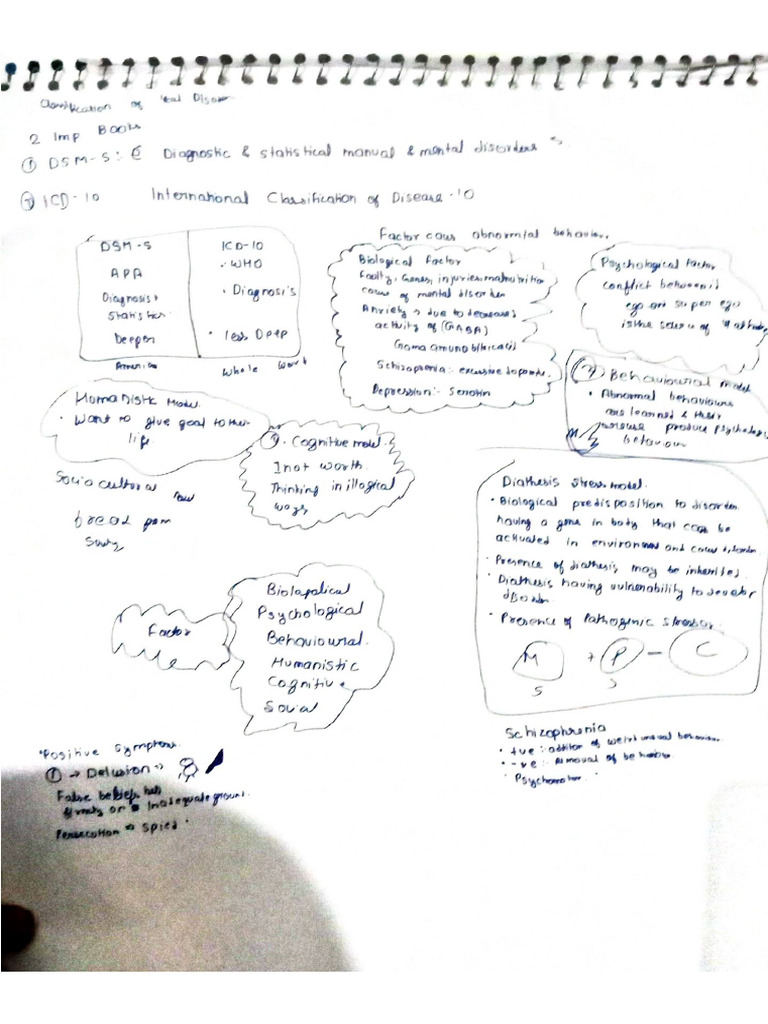 Classification of
2 Imp Books
① DSM-5: Diagnostic & statistical manual & mental disorders
② ICD-10 International Classification of Disease-10
DSM-5
APA
Diagnosis &
Statistics.
Deeper
America
ICD-10
• WHO
• Diagnosis
• less Deep
Whole world
Factor caus abnormal behaviour.
Biological Factor
Faulty, Genes, injuries, malnutrition
cause of mental disorder
Anxiety → due to decreased
activity of (GABA)
Schizophrenia:- excessive dopamine.
Depression:-
Psychological Factor
conflict between
ego and super ego
is the source of
Behavioural model
• Abnormal behaviours
are learned &
produce
behaviour
Humanistic Model.
• Want to give goal to their
life.
Socio cultural
bread
Cognitive model.
I not worth.
Thinking in illogical
ways
Diathesis stress model.
• Biological predisposition to disorder.
having a gene in body that can be
activated in environment and cause disorder
• Presence of diathesis may be inherited.
• Diathesis having vulnerability to develop
• Presence of Pathogenic stressor.
M + P = C
S S
Factor
Psychological
Behavioural.
Humanistic
Cognitive
Social
Positive Symptoms.
① → Delusion →
False beliefs
inadequate ground.
Persecution → Spied
Schizophrenia
• +ve :- addition of weird unusual behaviour
• -ve :- Removal of behaviour
• Psychomotor